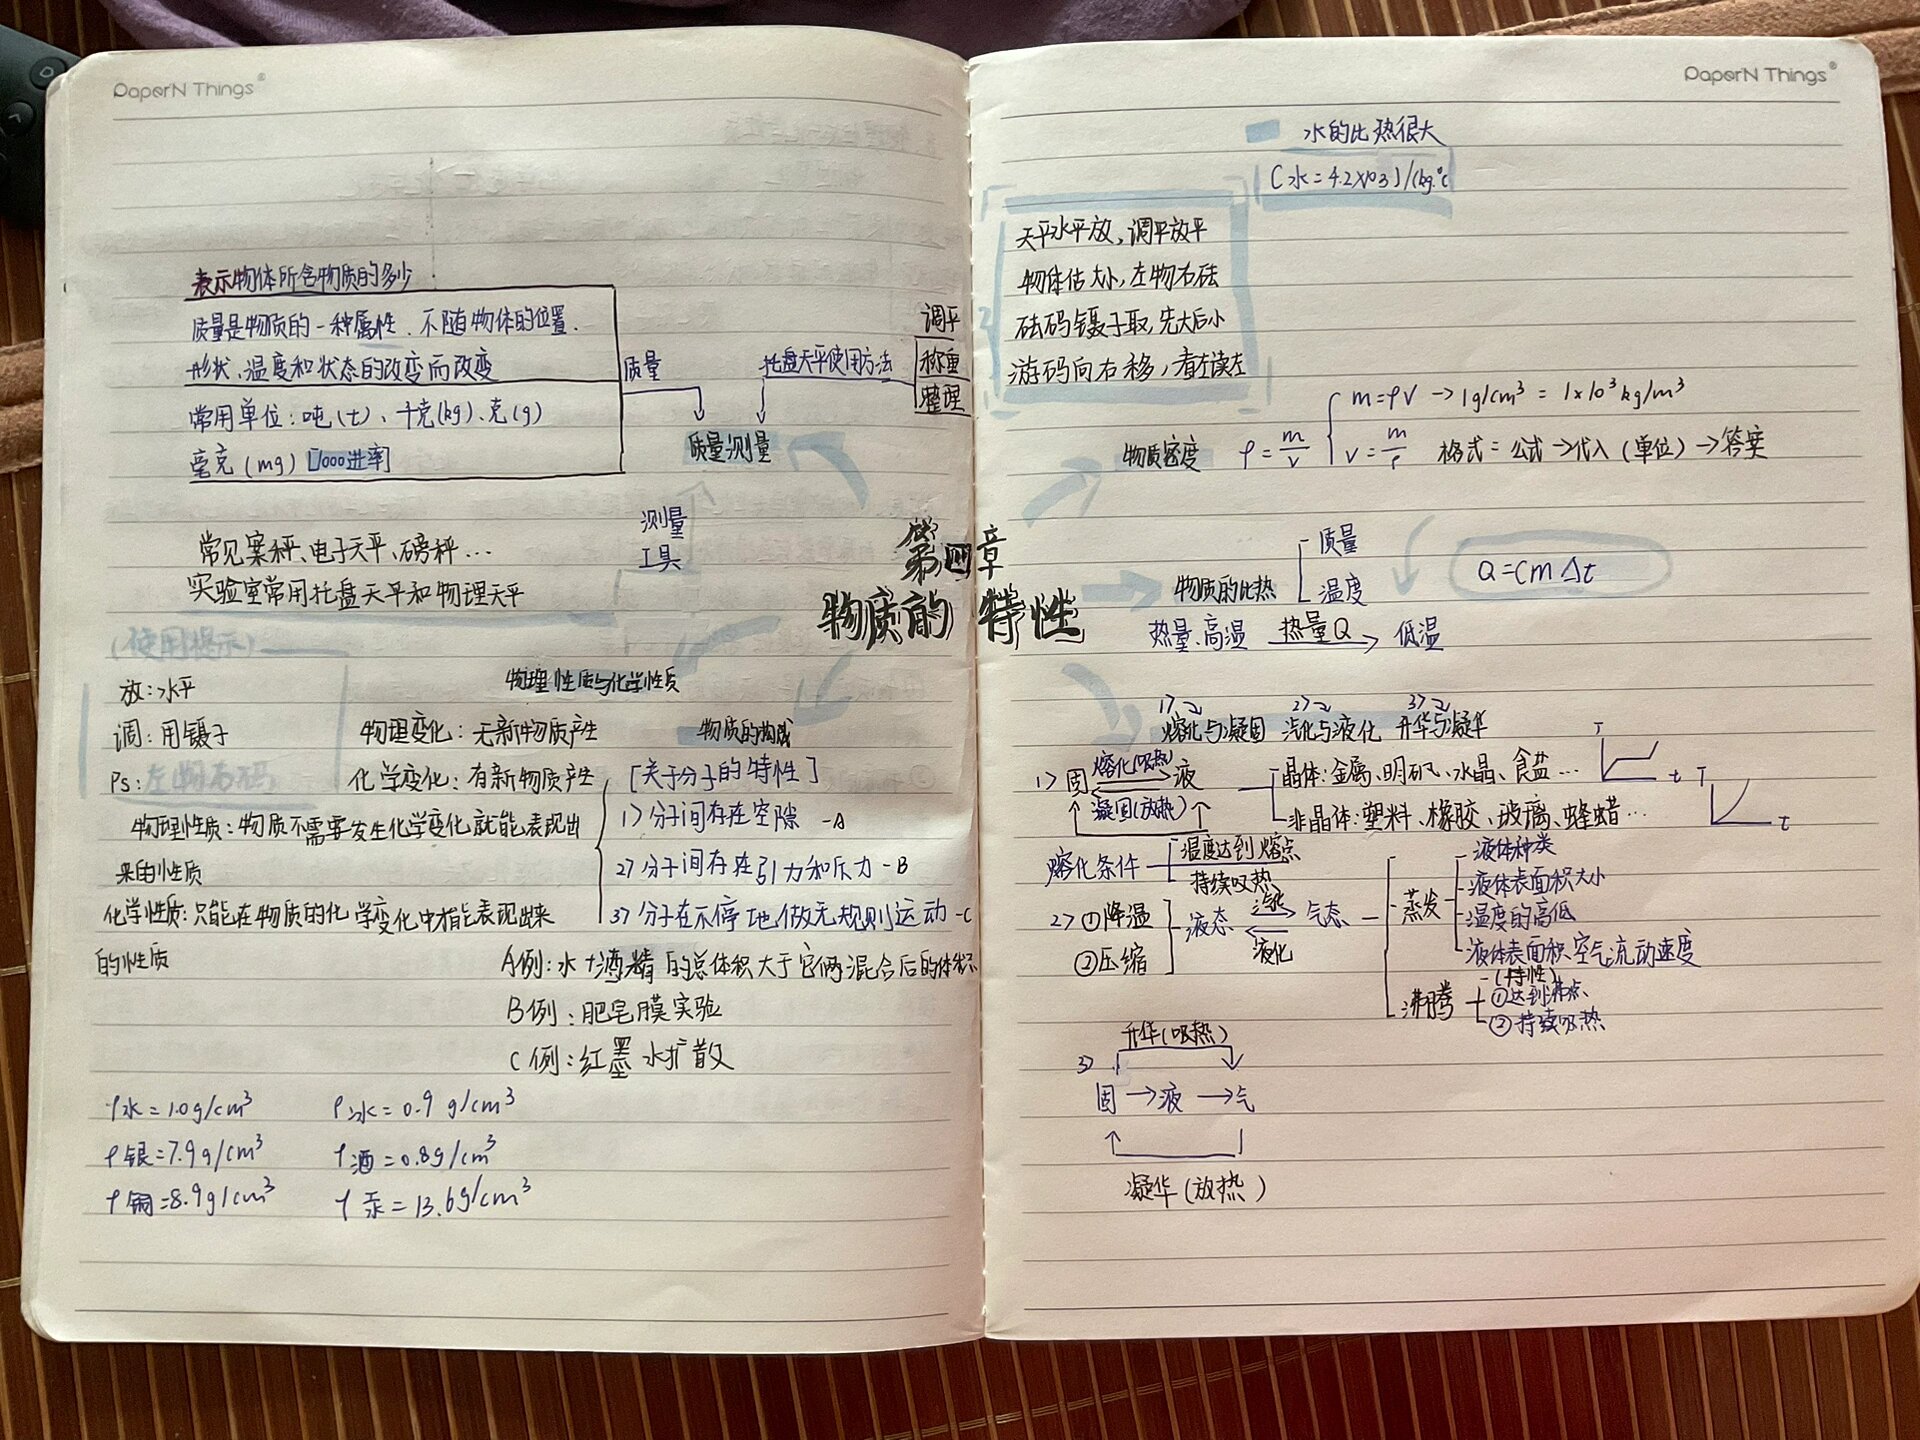 PaperN Things
表示物体所含物质的多少
质量是物质的一种属性、不随物体的位置、
形状、温度和状态的改变而改变
常用单位:吨(t)、千克(kg)、克(g)
毫克(mg) 1000进率
质量
质量测量
托盘天平使用方法
调平
称重
整理
测量
工具
常见案秤、电子天平、磅秤…
实验室常用托盘天平和物理天平
(使用提示)
放:水平
调:用镊子
Ps:左物右码
物理性质与化学性质
物理变化:无新物质产生
化学变化:有新物质产生
物理性质:物质不需要发生化学变化就能表现出
来的性质
化学性质:只能在物质的化学变化中才能表现出来
的性质
物质的构成
[关于分子的特性]
1>分子间存在空隙 -A
2>分子间存在引力和斥力 -B
3>分子在不停地做无规则运动 -C
A例:水+酒精的总体积大于它俩混合后的体积
B例:肥皂膜实验
C例:红墨水扩散
ρ水=1.0g/cm³ ρ冰=0.9 g/cm³
ρ银=7.9g/cm³ ρ酒=0.8g/cm³
ρ铜=8.9g/cm³ ρ汞=13.6g/cm³
第四章
物质的特性
PaperN Things
水的比热很大
C水=4.2×103J/(kg·℃
天平水平放,调平放平
物体估大小,左物右砝
砝码镊子取,先大后小
游码向右移,看左读左
物质密度 ρ=m/v
m=ρV →1g/cm³ = 1×10³kg/m³
V=m/ρ 格式=公式→代入(单位)→答案
物质的比热
质量
温度
Q=Cm△t
热量、高温 热量Q 低温
1> 2> 3>
熔化与凝固 汽化与液化 升华与凝华
1>固 熔化(吸热) 液
凝固(放热)
晶体:金属、明矾、水晶、食盐…
非晶体:塑料、橡胶、玻璃、蜂蜡…
T t
T t
熔化条件
温度达到熔点
持续吸热
2>①降温
②压缩
液态 汽化 气态
液化
蒸发
液体种类
液体表面积大小
温度的高低
液体表面积空气流动速度
沸腾
(特性)
①达到沸点
②持续吸热
3>
升华(吸热)
固→液→气
凝华(放热)